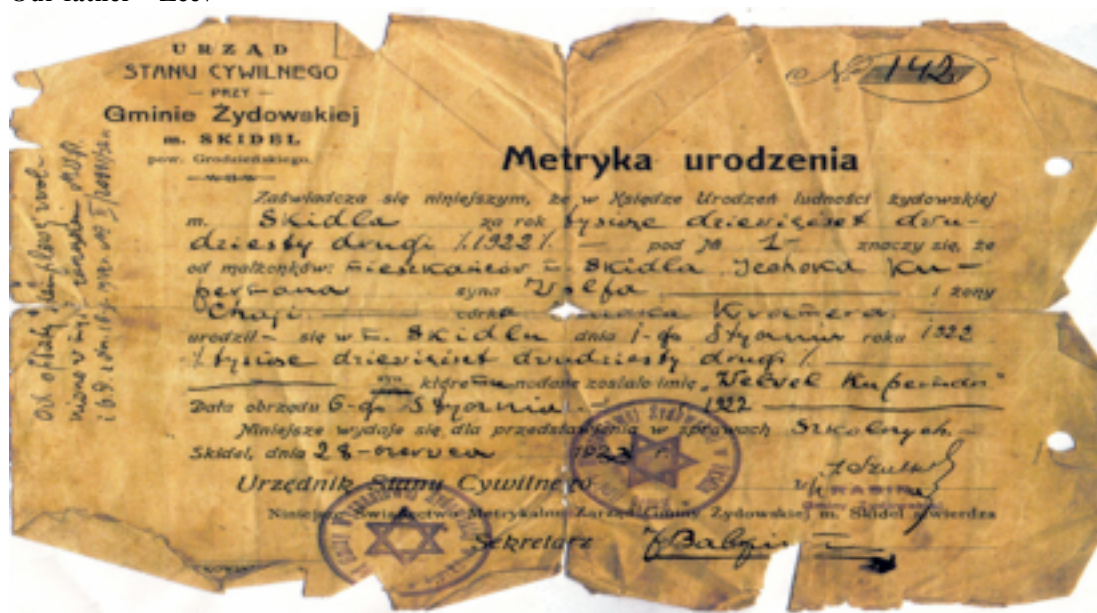 Our father - Zeev
URZĄD
STANU CYWILNEGO
— PRZY —
Gminie Żydowskiej
m. SKIDEL
pow. Grodzieńskiego.
№ 142
Metryka urodzenia
Zaświadcza się niniejszym, że w Księdze Urodzeń ludności żydowskiej
m. Skidla za rok tysiąc dziewięćset dwu-
dziesty drugi /1922/. — pod № 1- znaczy się, że
od małżonków: mieszkańców m. Skidla Ku-
permana syna Wolfa i żony
Chaji córka Kramera.
urodził- się w m. Skidlu dnia 1-go Stycznia roku 1922
/tysiąc dziewięćset dwudziesty drugi/.
syn które mu nadane zostało imię „Welwel Kuperman"
Data obrzędu 6-go Stycznia 1922
Niniejsze wydaje się dla przedstawienia w sprawach Szkolnych.—
Skidel, dnia 28-czerwca 1923 r.
Urzędnik Stanu Cywilnego
RABIN
Gminy Żydowskiej
Niniejsze Świadectwo Metrykalne Zarząd Gminy Żydowskiej m. Skidel stwierdza
Sekretarz